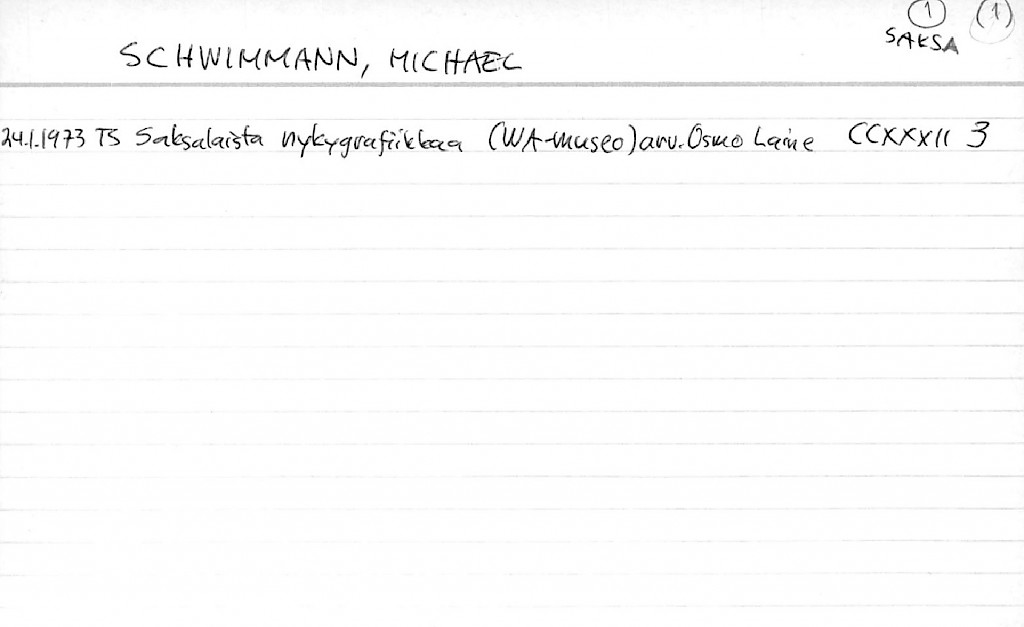 1 (1)
SAKSA
SCHWIMMANN, MICHAEL
24.1.1973 TS Saksalaista nykygrafiikkaa (WA-museo) arv. Osmo Laine CCXXXII 3